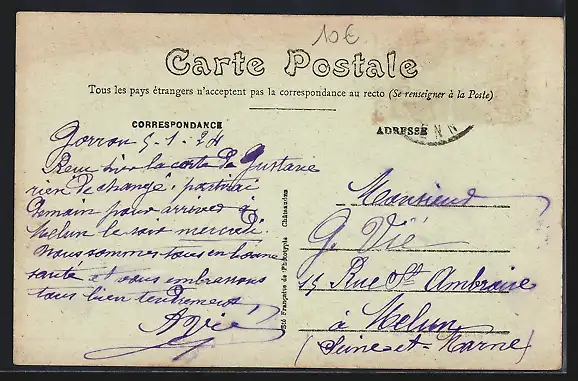 10€
Carte Postale
Tous les pays étrangers n'acceptent pas la correspondance au recto (Se renseigner à la Poste)
CORRESPONDANCE
ADRESSE
Gorron 5-1-24
Reçu hier la carte de Gustave
rien de changé, partirai
demain pour arriver à
Melun le soir mercredi.
Nous sommes tous en bonne
santé et vous embrassons
tous bien tendrement
A Vié
Sté Française de Phototypie Châteaudun
Monsieur
G. Vié
15 Rue St Ambroise
à Melun
(Seine-et-Marne)